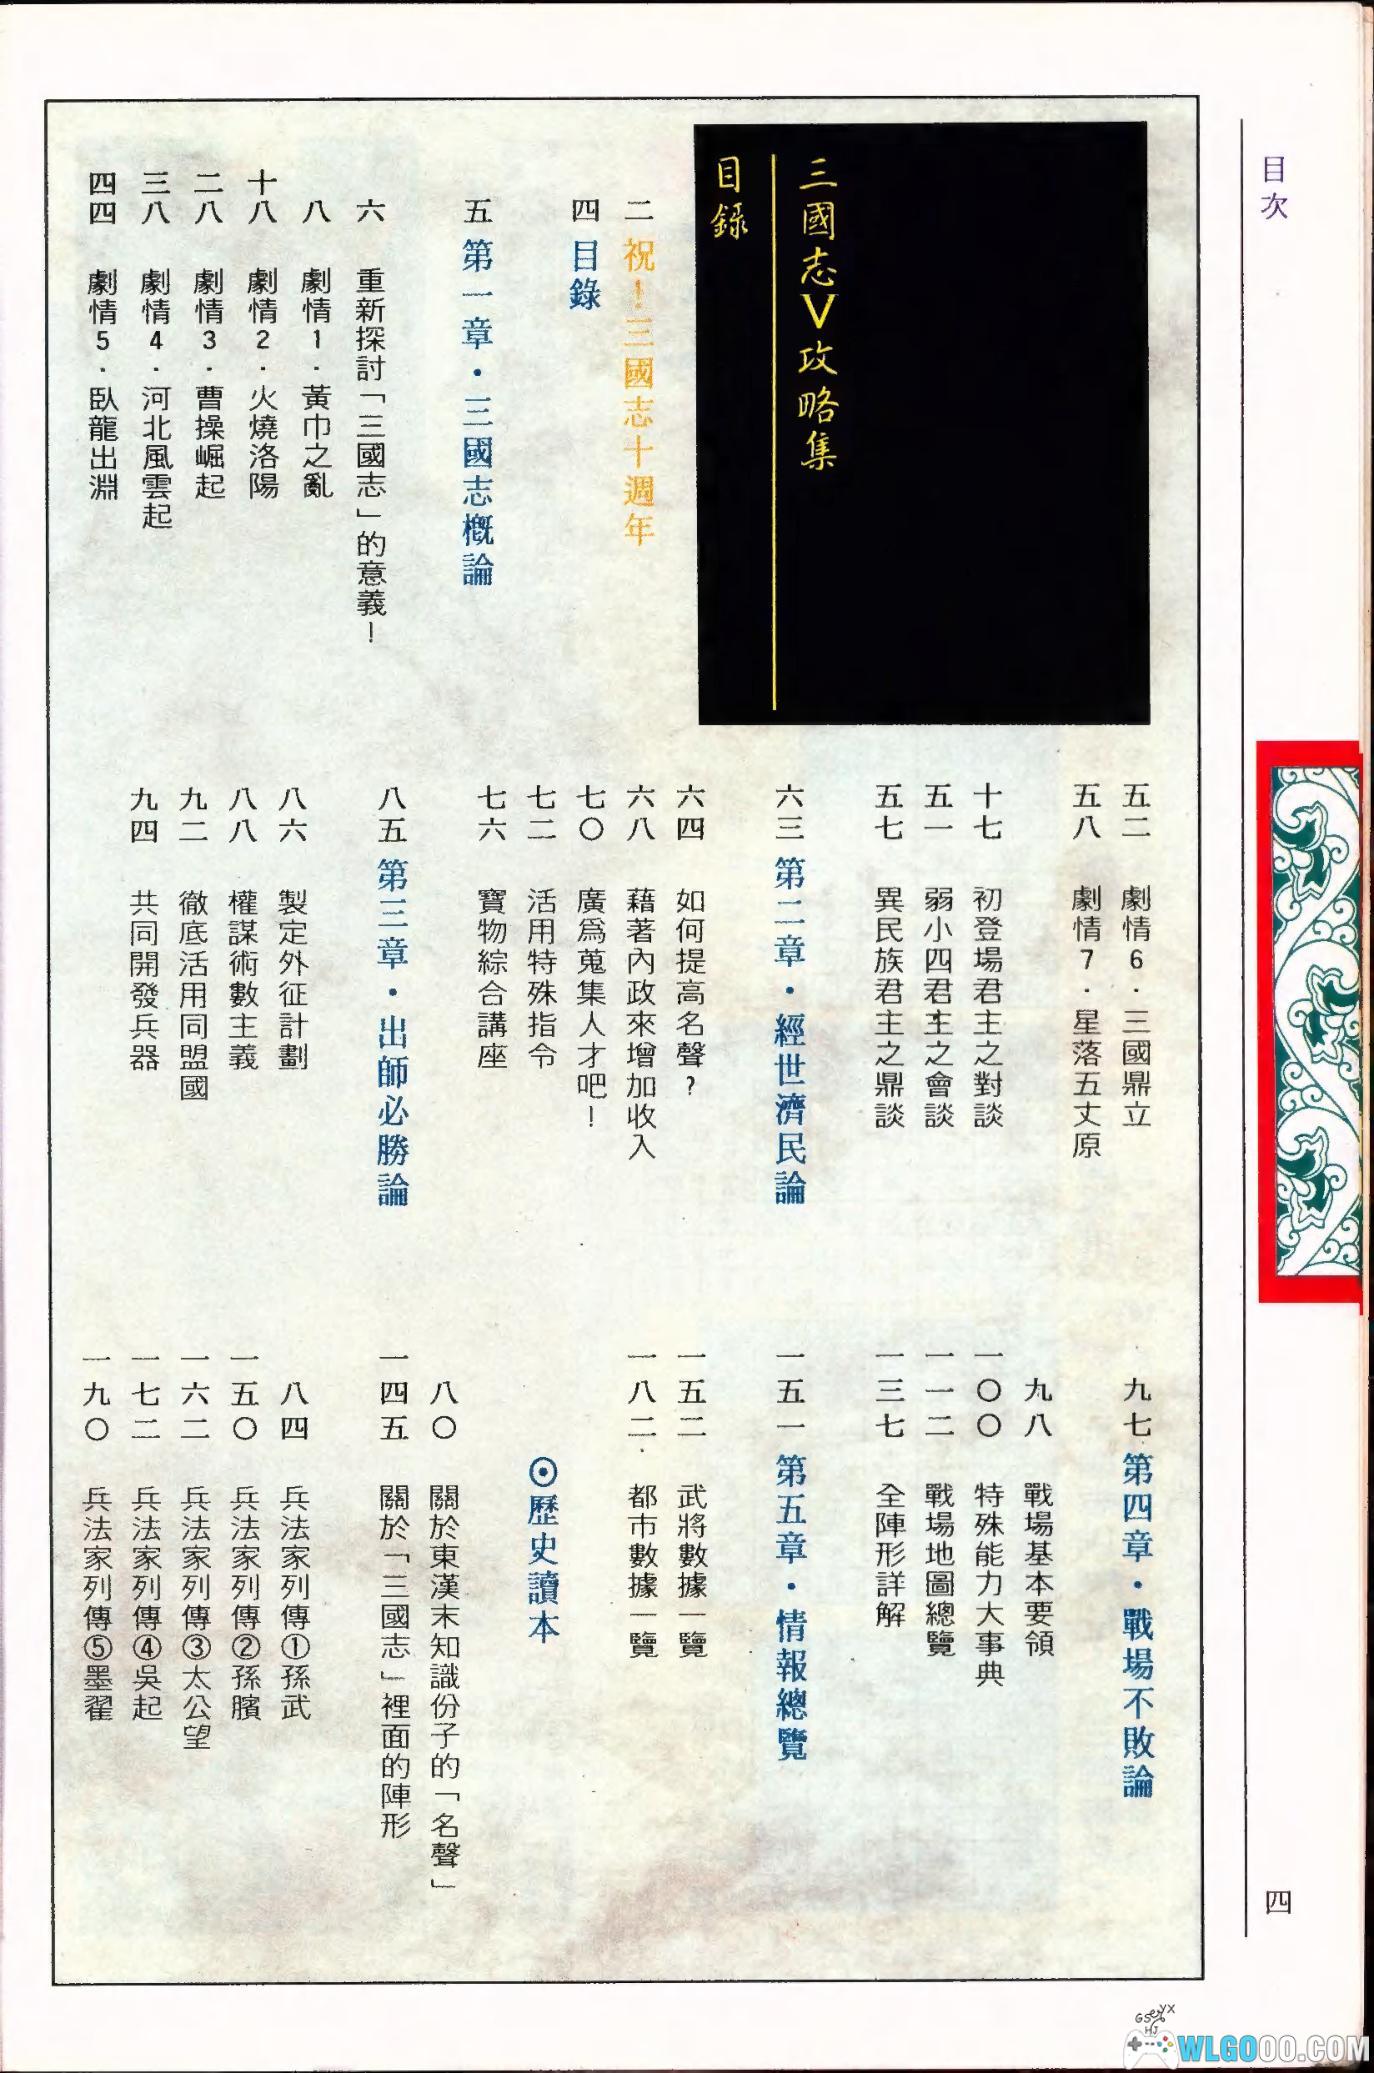 目次
三國志V攻略集
目錄
二 祝！三國志十週年
四 目錄
五 第一章・三國志概論
六 重新探討「三國志」的意義！
八 劇情1・黃巾之亂
十八 劇情2・火燒洛陽
二八 劇情3・曹操崛起
三八 劇情4・河北風雲起
四四 劇情5・臥龍出淵
五二 劇情6・三國鼎立
五八 劇情7・星落五丈原
十七 初登場君主之對談
五一 弱小四君主之會談
五七 異民族君主之鼎談
六三 第二章・經世濟民論
六四 如何提高名聲？
六八 藉著內政來增加收入
七〇 廣為蒐集人才吧！
七二 活用特殊指令
七六 寶物綜合講座
八五 第三章・出師必勝論
八六 製定外征計劃
八八 權謀術數主義
九二 徹底活用同盟國
九四 共同開發兵器
九七 第四章・戰場不敗論
九八 戰場基本要領
一〇〇 特殊能力大事典
一一二 戰場地圖總覽
一三七 全陣形詳解
一五一 第五章・情報總覽
一五二 武將數據一覽
一八二 都市數據一覽
⊙歷史讀本
八〇 關於東漢末知識份子的「名聲」
一四五 關於「三國志」裡面的陣形
八四 兵法家列傳①孫武
一五〇 兵法家列傳②孫臏
一六二 兵法家列傳③太公望
一七二 兵法家列傳④吳起
一九〇 兵法家列傳⑤墨翟
四
WLGOOO.COM